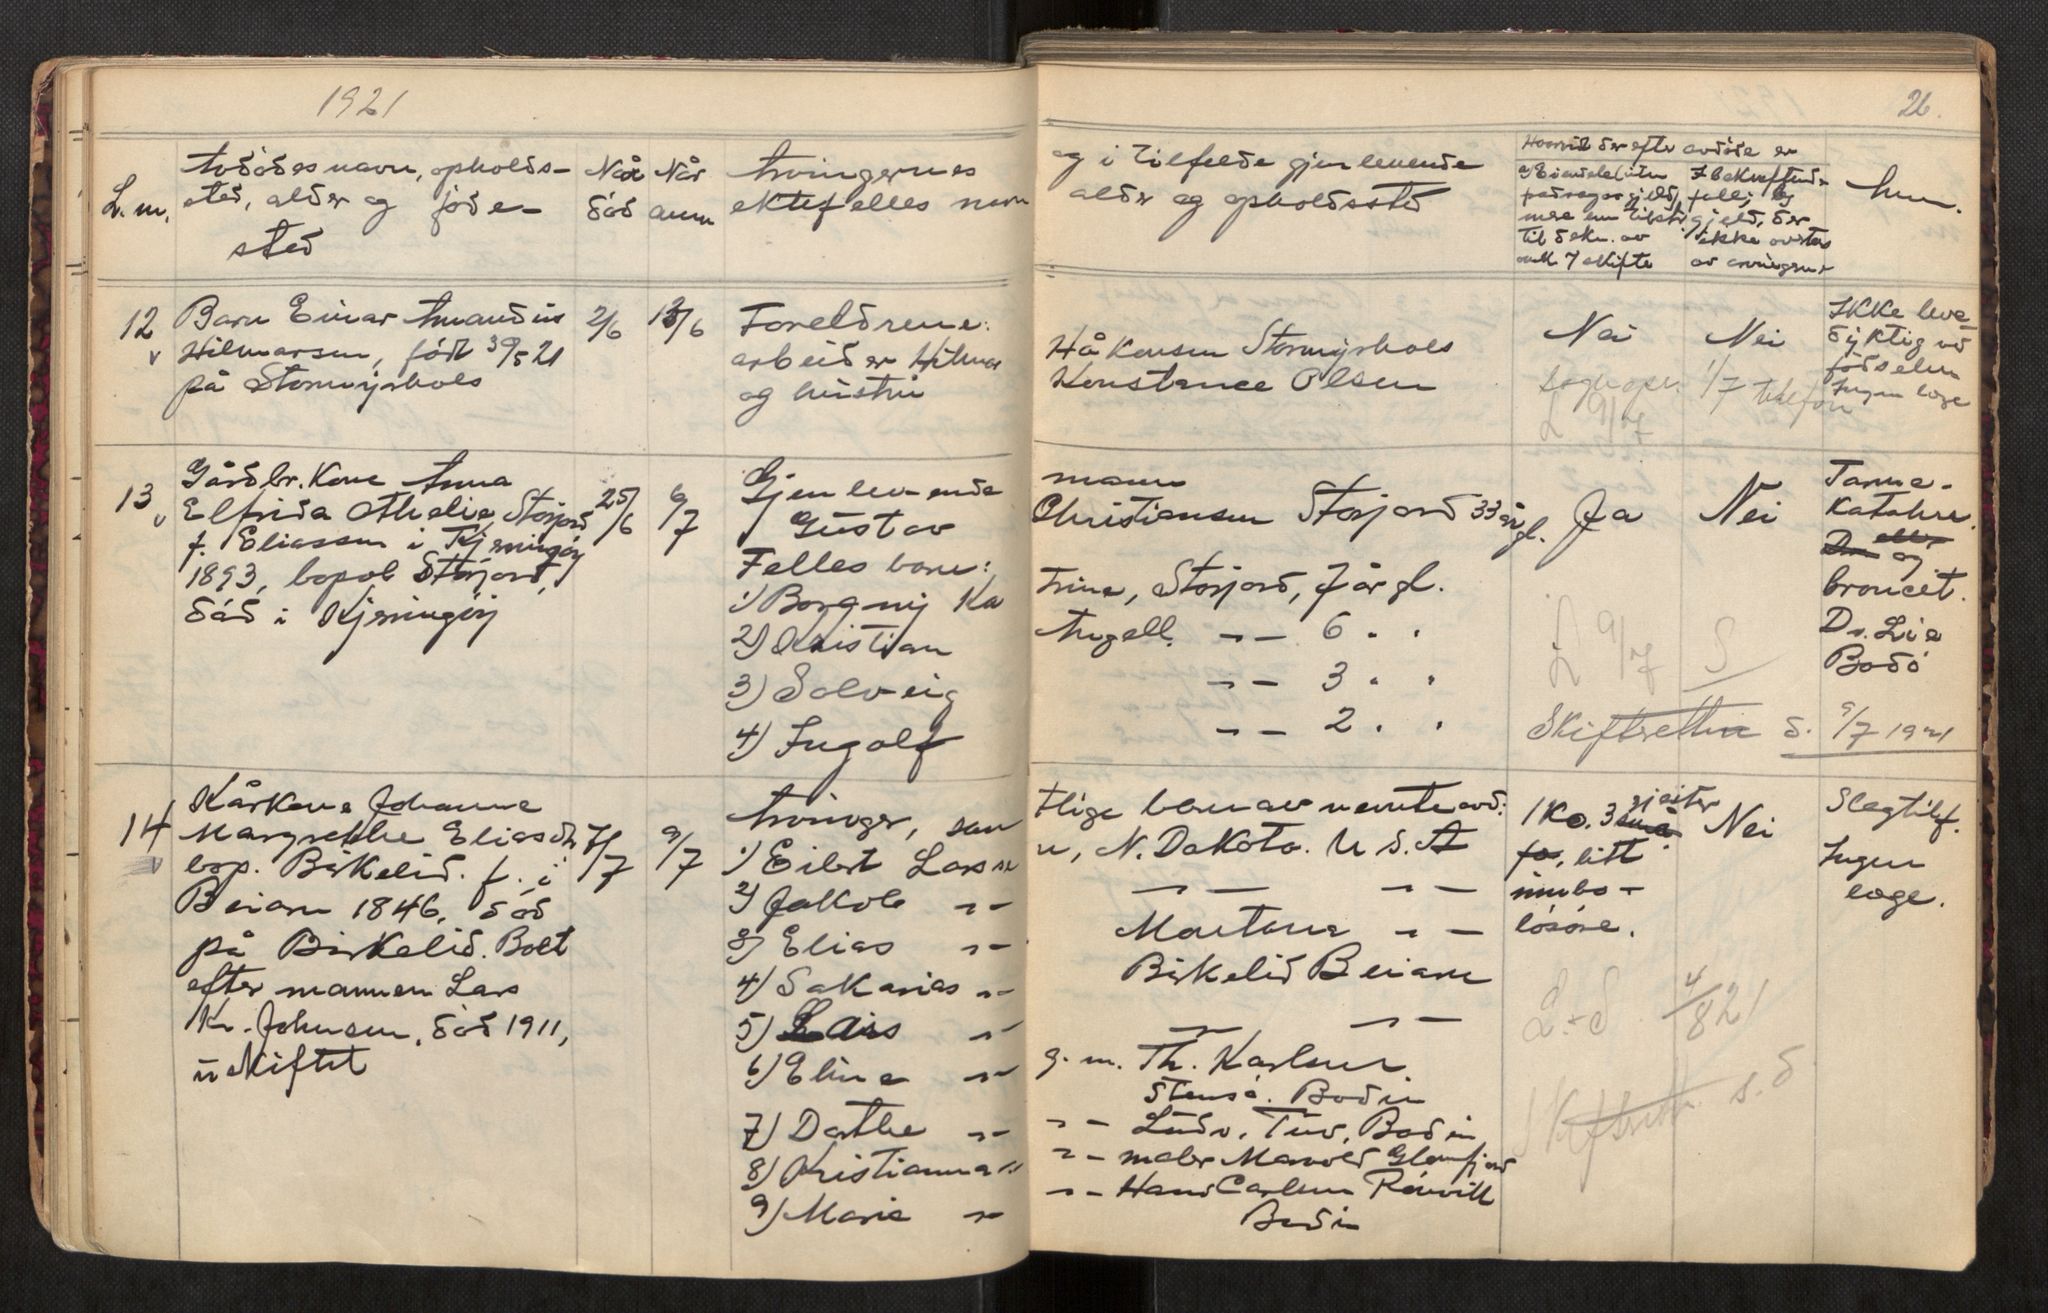 1921
26.
L. m.
Avdødes navn, opholds-
sted, alder ogføde-
sted
Når
død
Når
anm
Arvingernes
ektefelles navn
og i tilfelde gjenlevende
alder og opholdssted
Hvorvidt der efter avdøde er
Anm.
12
Barn Einar Amandus
Hilmarsen, født 30/5 21
på Stormyrhols
2/6
13/6
Foreldrene:
arbeider Hilmar
og hustru
Håkonsen Stormyrhols
Konstance Olsen
Nei
Nei
1/7 telefon
L 9/7
Ikke leve-
dyktig ved
fødselen
Ingen læge
13
Gårdbr. Kone Anna
Elfrida Athelie Storjord
f. Eliassen i Kjerringøy
1893, bopæl Storjord,
død i Kjerringøy
25/6
6/7
Gjenlevende
Gustav
Felles barn:
1) Borgny Ka
2) Kristian
3) Solveig
4) Ingolf
mann
Christiansen Storjord 33 år gl.
trine, Storjord, 7 år gl.
Angell. -"- 6 " "
-"- 3 " "
-"- 2 " "
Ja
Nei
L 9/7 S
Skifteretten d. 9/7 1921
Tarm-
Katahr
eller
og
broncit.
Dr. Lie
Bodø
14
Kårkone Johanna
Margrethe Eliasdtr
bop. Birkelid. f. i
Beiarn 1846, død
på Birkelid. Boet
efter mannen Lars
Kr. Johnsen, død 1911,
uskiftet
7/7
9/7
Arvinger, sam
1) Eilert Larsen
2) Jakob -"-
3) Elias -"-
4) Sakarias -"-
5) Lars -"-
6) Eline -"-
7) Dorthe -"-
8) Kristianna -"-
9) Marie -"-
tlige barn av nevnte avd:
u, N. Dakota. U.S.A
-"- -"-
Montana -"-
Birkelid Beiarn
-"- -"-
g. m. Th. Karlsen
Stensø. Bodin
-"- Ludv. Tuv, Bodin
-"- maler Marvold Glomfjord
-"- Hans Carlsen Rønvik
Bodin
1 Ko. 3 gjeiter
små
får, litt
innbo-
løsøre.
Nei
L.-S. 4/8 21
Skifterett. s. d
Slagtilf.
Ingen
læge.